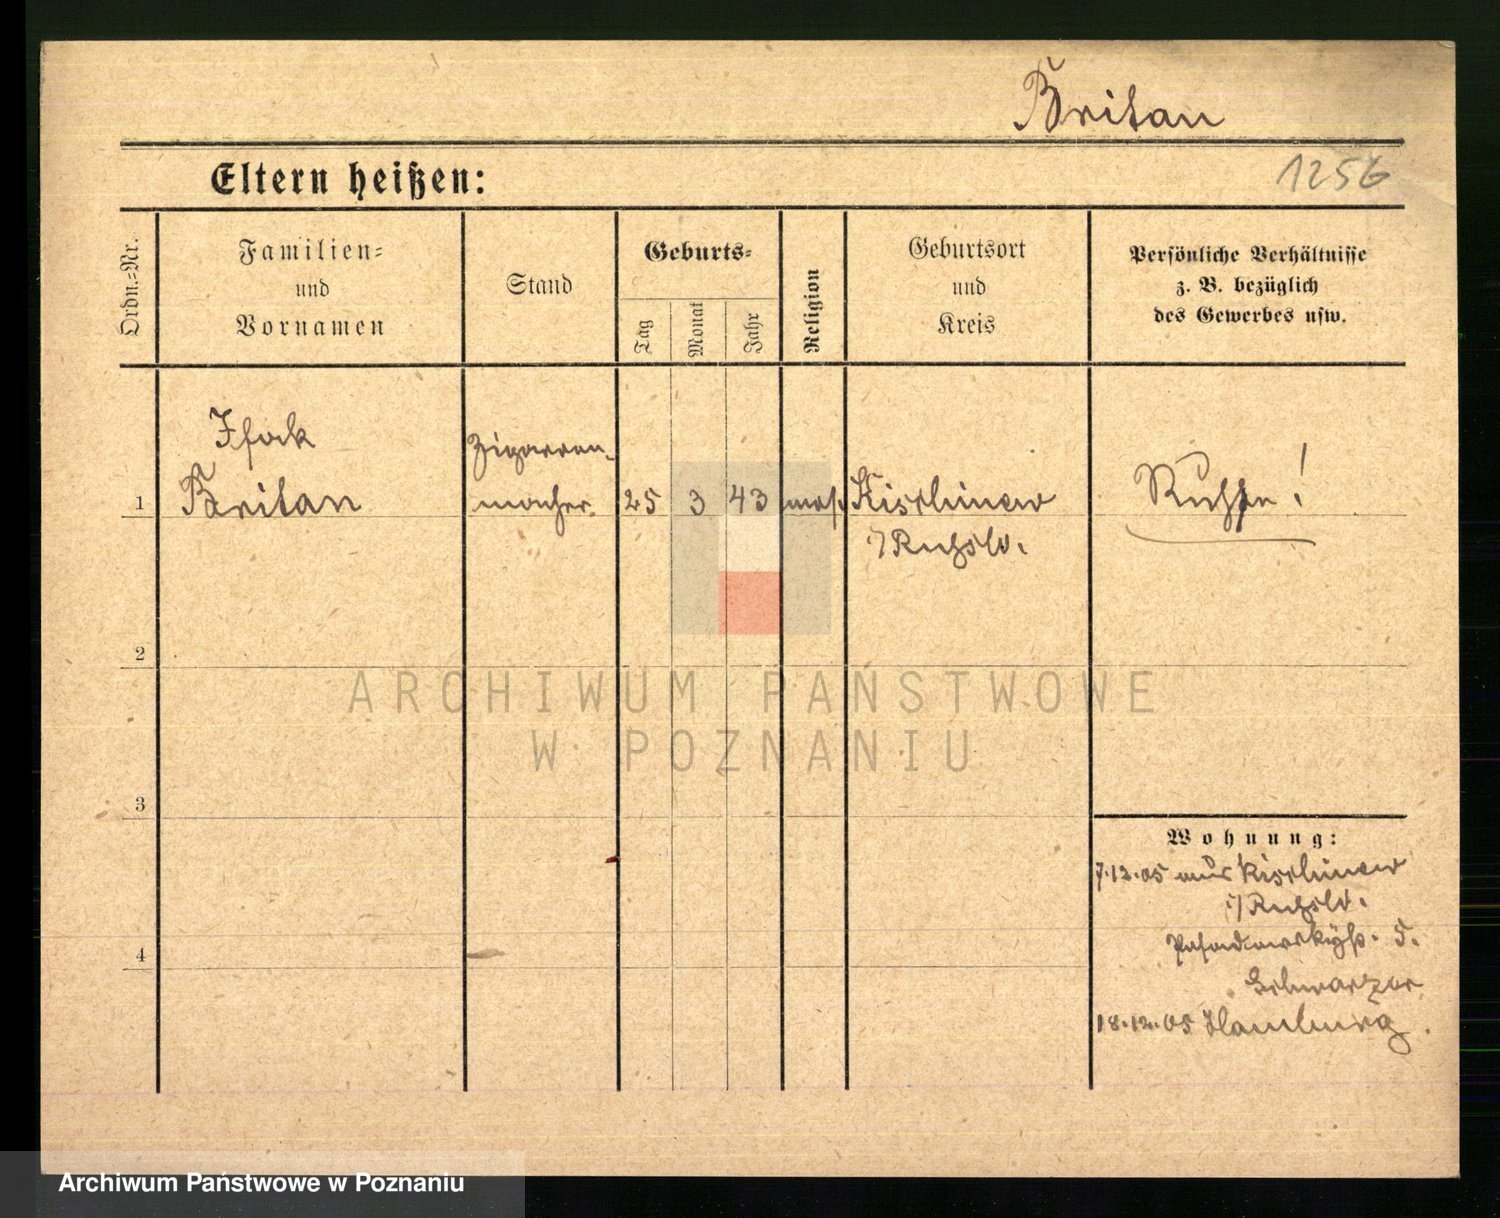 Britan
Eltern heißen:
1256
Ordn.-Nr.
Familien-
und
Vornamen
Stand
Geburts-
Tag
Monat
Jahr
Religion
Geburtsort
und
Kreis
Persönliche Verhältnisse
z. B. bezüglich
des Gewerbes usw.
1
Britan
Zigarren-
macher.
25
3
43
mos.
Kischinew
i/Rußld.
Russe!
2
3
4
Wohnung:
7.12.05 aus Kischinew
i/Rußld.
5.
Schwarzer
18.12.05 Hamburg.
ARCHIWUM PAŃSTWOWE
W POZNANIU
Archiwum Państwowe w Poznaniu